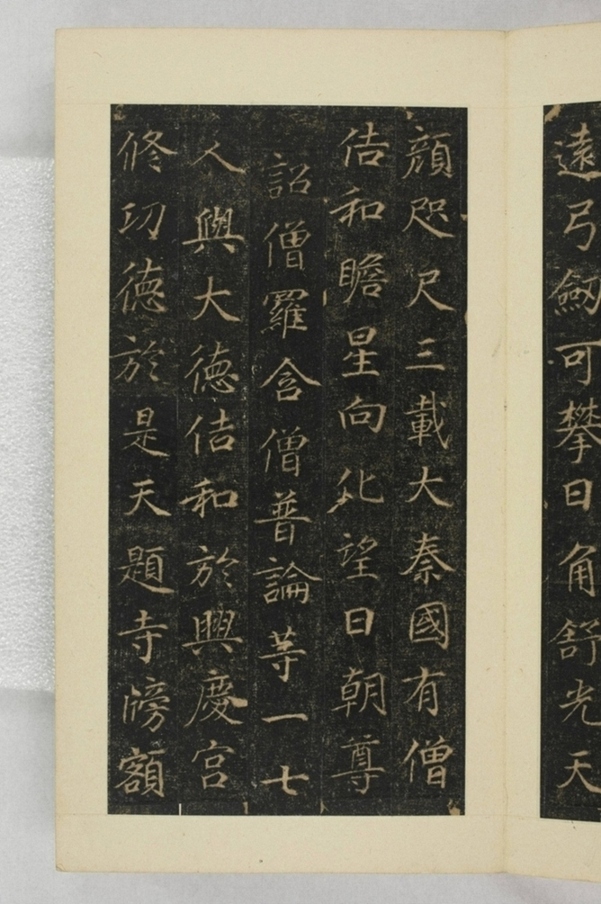 遠弓劒可攀日角舒光天
顔咫尺三載大秦國有僧
佶和瞻星向化望日朝尊
詔僧羅含僧普論等一七
人與大德佶和於興慶宮
修功德於是天題寺牓額